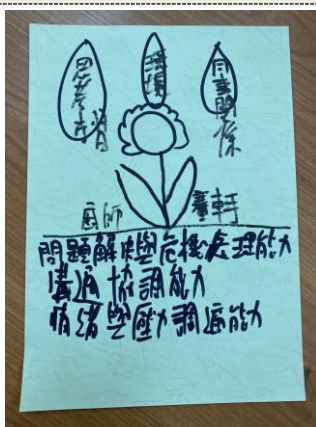 環境
同事關係
廚師
問題解決與危機處理能力
溝通協調能力
情緒與壓力調適能力